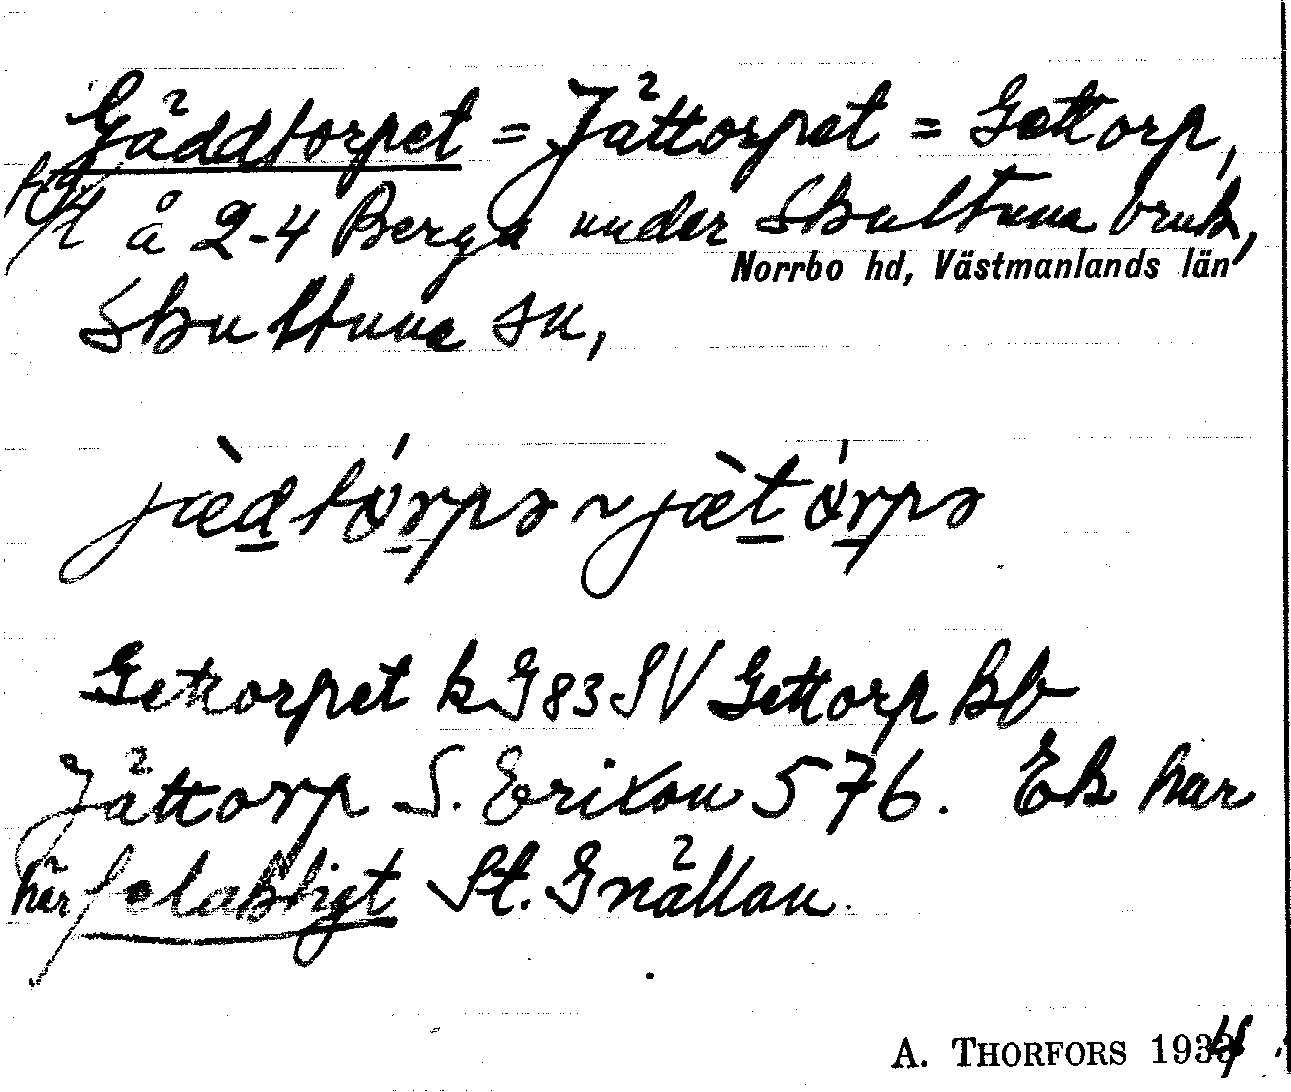 Gäddtorpet = Jättorpet = Gettorp,
å 2-4 Berga under Skultuna bruk,
Norrbo hd, Västmanlands län
Skultuna sn,
jæ̀dtórpə ~ jæ̀tórpə
Getorpet k G83SV Gettorp Bb
Jättorp S. Erixon 576. Ek har
här felaktigt St. Gnällan.
A. THORFORS 1934